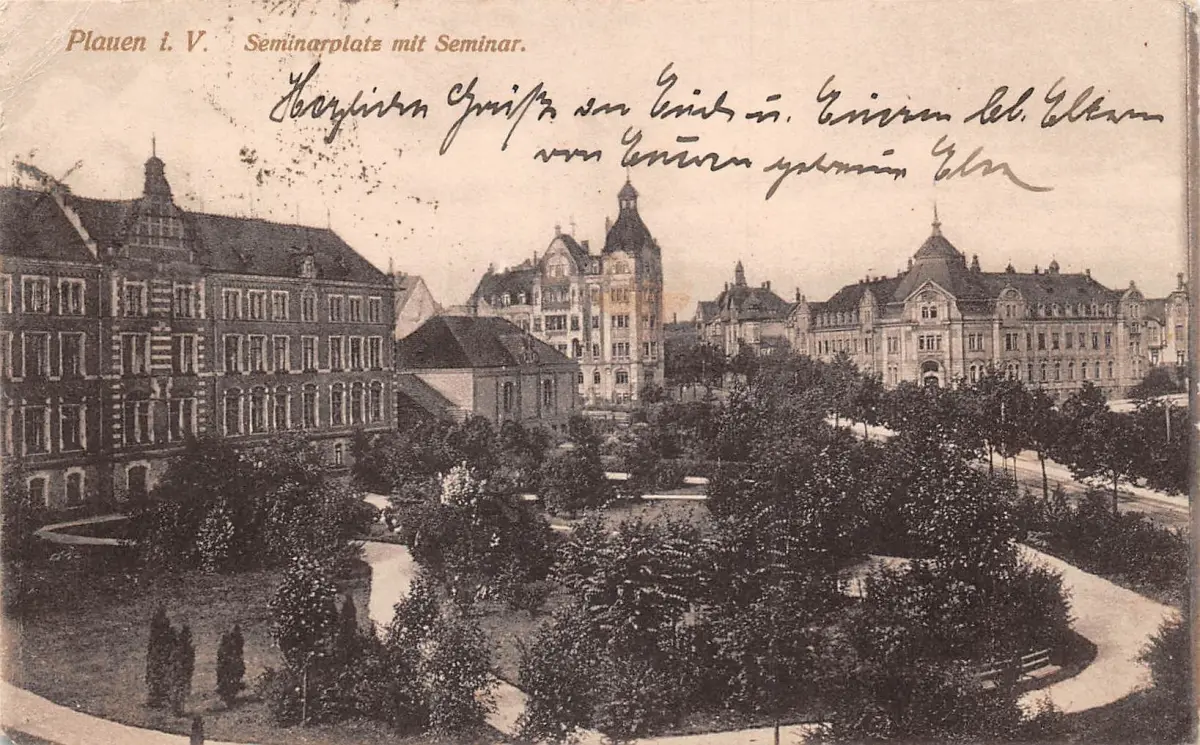 Plauen i. V. Seminarplatz mit Seminar.
Herzlichen Gruß an Euch u. Euren lb. Eltern
von Eurer getreuen Elsa